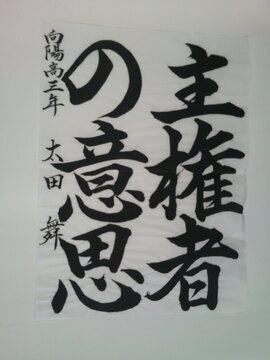 主権者
の意思
向陽高三年 太田 舞